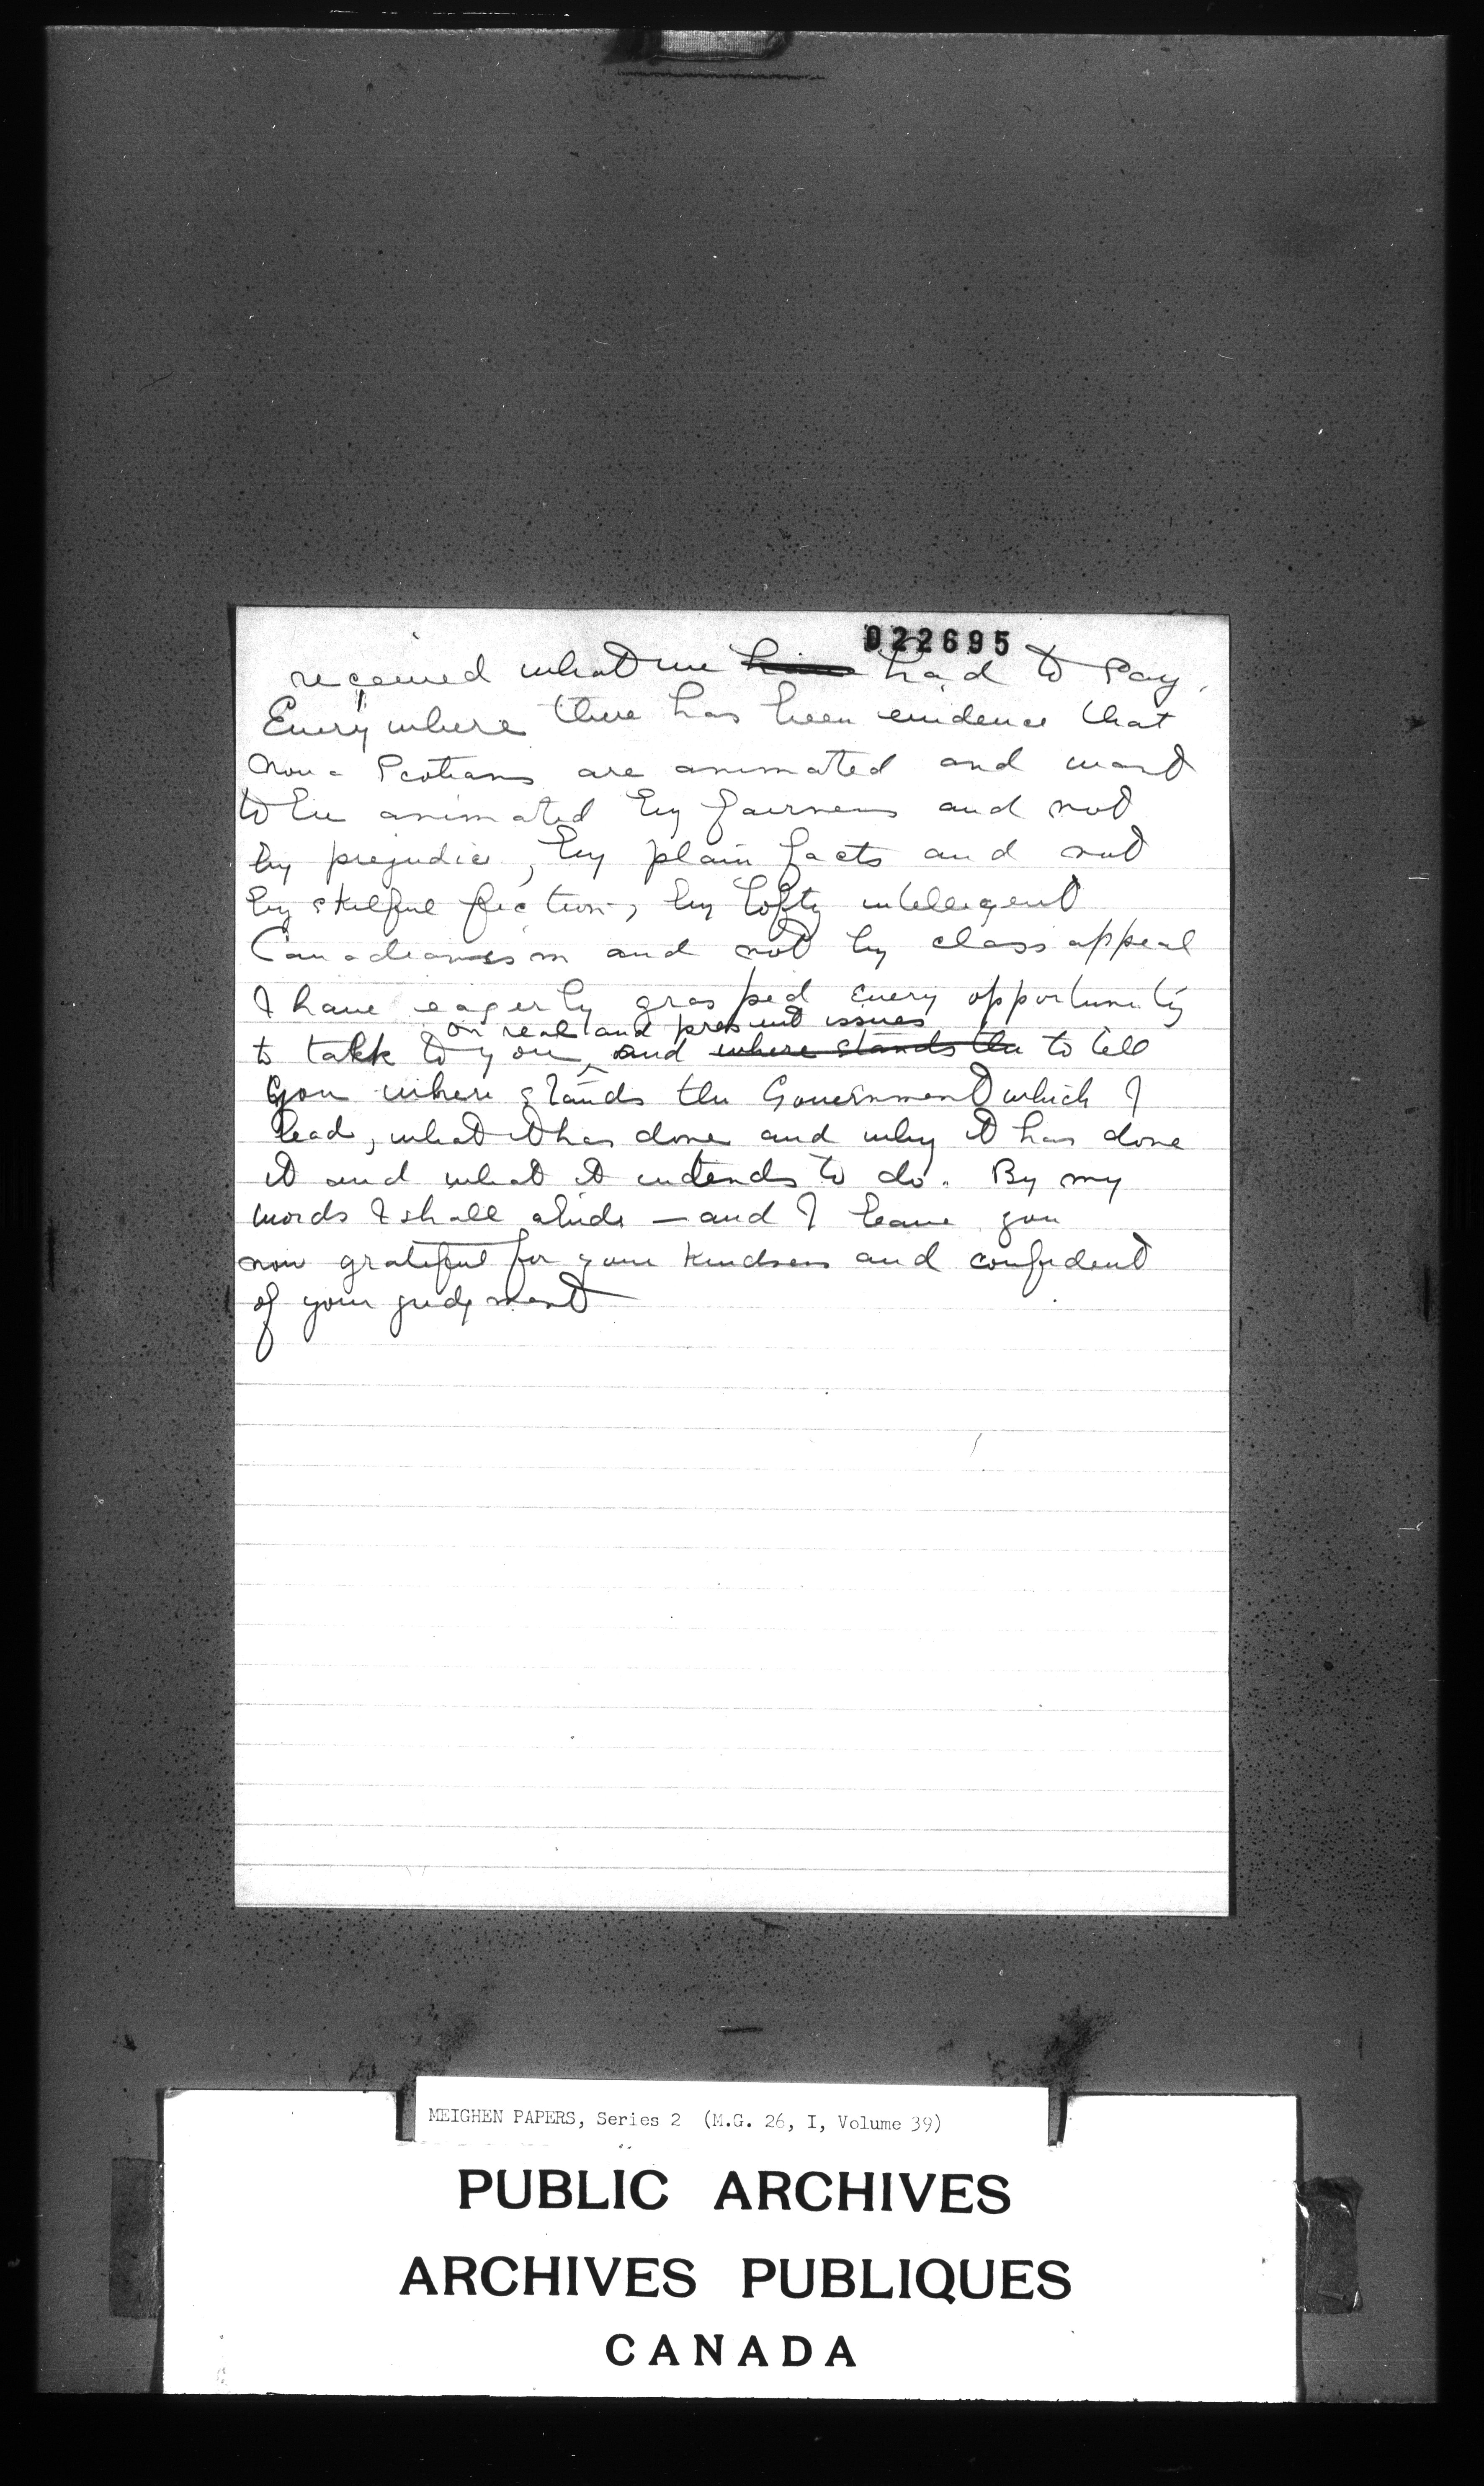 022695
received what we had to say.
Everywhere there has been evidence that
Nova Scotians are animated and want
to be animated by fairness and not
by prejudice, by plain facts and not
by skilful fiction, by lofty intelligent
Canadianism and not by class appeal
I have eagerly grasped every opportunity
on real and present issues
to talk to you, and where stands the to tell
you where stands the Government which I
lead, what it has done and why it has done
it and what it intends to do. By my
words I shall abide — and I leave you
now grateful for your kindness and confident
of your judgment —
MEIGHEN PAPERS, Series 2 (M.G. 26, I, Volume 39)
PUBLIC ARCHIVES
ARCHIVES PUBLIQUES
CANADA